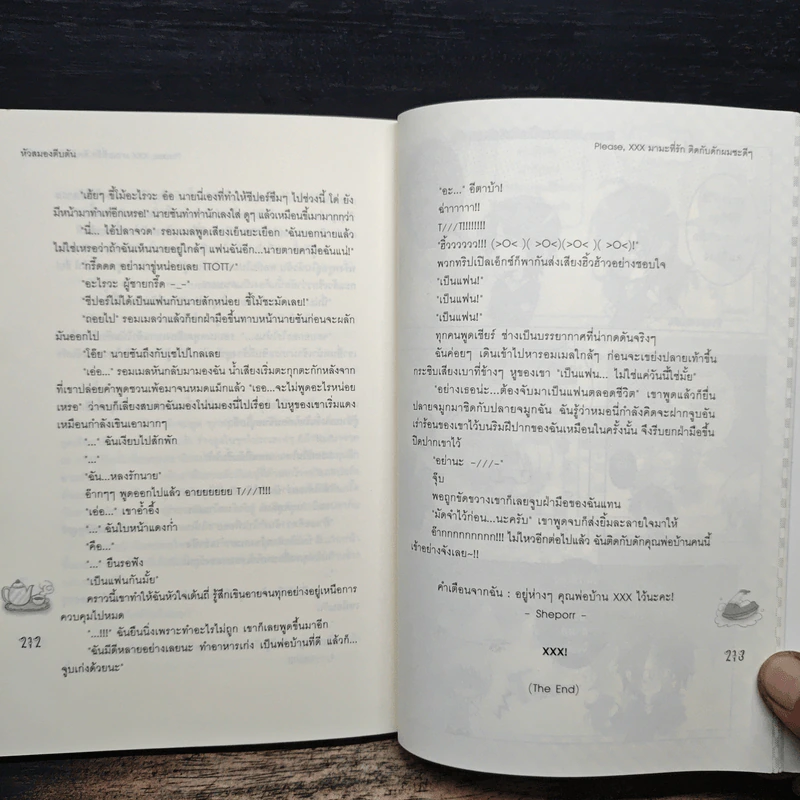 หัวสมองตีบตัน
"เฮ้ยๆ ขี้ไม้อะไรวะ อ๋อ นายนี่เองที่ทำให้ชีปอร์ซึมๆ ไปช่วงนี้ ไต่ ยัง
มีหน้ามาทำเท่อีกเหรอ!" นายซันทำท่านักเลงใส่ ดูๆ แล้วเหมือนขี้เมามากกว่า
"นี่... ไอ้ปลาจวด" รอมเมลพูดเสียงเย็นยะเยือก "ฉันบอกนายแล้ว
ไม่ใช่เหรอว่าถ้าฉันเห็นนายอยู่ใกล้ๆ แฟนฉันอีก...นายตายคามือฉันแน่!"
"กรี๊ดดด อย่ามาขู่หน่อยเลย TTOTT/"
"อะไรวะ ผู้ชายกรี๊ด -_-"
"ชีปอร์ไม่ได้เป็นแฟนกับนายสักหน่อย ขี้ไม้ชะมัดเลย!"
"ถอยไป" รอมเมลว่าแล้วก็ยกฝ่ามือขึ้นทาบหน้านายซันก่อนจะผลัก
มันออกไป
"โอ๊ย" นายซันถึงกับเซไปไกลเลย
"เอ่อ..." รอมเมลหันกลับมามองฉัน น้ำเสียงเริ่มตะกุกตะกักหลังจาก
ที่เขาปล่อยคำพูดชวนเพ้อมาจนหมดแม็กแล้ว "เธอ...จะไม่พูดอะไรหน่อย
เหรอ" ว่าจบก็เลี่ยงสบตาฉันมองโน่นมองนี่ไปเรื่อย ใบหูของเขาเริ่มแดง
เหมือนกำลังเขินเอามากๆ
"..." ฉันเงียบไปสักพัก
"..."
"ฉัน...หลงรักนาย"
อ๊ากๆๆ พูดออกไปแล้ว อายยยยยย T///T!!!
"เอ่อ..." เขาอ้ำอึ้ง
"..." ฉันใบหน้าแดงก่ำ
"คือ..."
"..." ยืนรอฟัง
"เป็นแฟนกันมั้ย"
คราวนี้เขาทำให้ฉันหัวใจเต้นถี่ รู้สึกเขินอายจนทุกอย่างอยู่เหนือการ
ควบคุมไปหมด
"...!!!" ฉันยืนนิ่งเพราะทำอะไรไม่ถูก เขาก็เลยพูดขึ้นมาอีก
"ฉันมีดีหลายอย่างเลยนะ ทำอาหารเก่ง เป็นพ่อบ้านที่ดี แล้วก็...
จูบเก่งด้วยนะ"
272
Please, XXX มามะที่รัก ติดกับดักผมซะดีๆ
"อะ..." อีตาบ้า!
ฉ่าาาาาา!!
T///T!!!!!!!!
"ฮิ้ววววววว!!! (>O< )( >O<)(>O< )( >O<)!"
พวกทริปเปิลเอ็กซ์ก็พากันส่งเสียงฮิ้วฮ้าวอย่างชอบใจ
"เป็นแฟน!"
"เป็นแฟน!"
"เป็นแฟน!"
ทุกคนพูดเชียร์ ช่างเป็นบรรยากาศที่น่ากดดันจริงๆ
ฉันค่อยๆ เดินเข้าไปหารอมเมลใกล้ๆ ก่อนจะเขย่งปลายเท้าขึ้น
กระซิบเสียงเบาที่ข้างๆ หูของเขา "เป็นแฟน... ไม่ใช่แค่วันนี้ใช่มั้ย"
"อย่างเธอน่ะ...ต้องจับมาเป็นแฟนตลอดชีวิต" เขาพูดแล้วก็ยื่น
ปลายจมูกมาชิดกับปลายจมูกฉัน ฉันรู้ว่าหมอนี่กำลังคิดจะฝากจูบอัน
เร่าร้อนของเขาไว้บนริมฝีปากของฉันเหมือนในครั้งนั้น จึงรีบยกฝ่ามือขึ้น
ปิดปากเขาไว้
"อย่านะ -///-"
จุ๊บ
พอถูกขัดขวางเขาก็เลยจูบฝ่ามือของฉันแทน
"มัดจำไว้ก่อน...นะครับ" เขาพูดจบก็ส่งยิ้มละลายใจมาให้
อ๊ากกกกกกกกก!!! ไม่ไหวอีกต่อไปแล้ว ฉันติดกับดักคุณพ่อบ้านคนนี้
เข้าอย่างจังเลย~!!
คำเตือนจากฉัน : อยู่ห่างๆ คุณพ่อบ้าน XXX ไว้นะคะ!
- Sheporr -
XXX!
(The End)
273